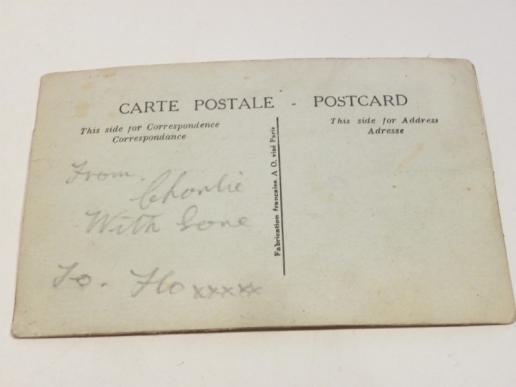 CARTE POSTALE - POSTCARD
This side for Correspondence
Correspondance
This side for Address
Adresse
Fabrication française A O. visé Paris
From.
Charlie
With Love
To. Flo xxxxx